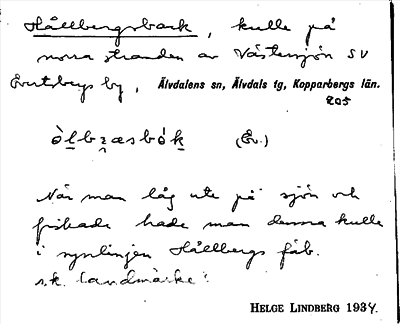 Hållbergsback, kulle på
norra stranden av Västersjön SV
Evertsbergs by, Älvdalens sn, Älvdals tg, Kopparbergs län.
205
òl̲bz̲æsbók̲ (Ev.)
När man låg ute på sjön och
fiskade hade man denna kulle
i synlinjen Hållbergs fäb.
s.k. "landmärke".
HELGE LINDBERG 1934.